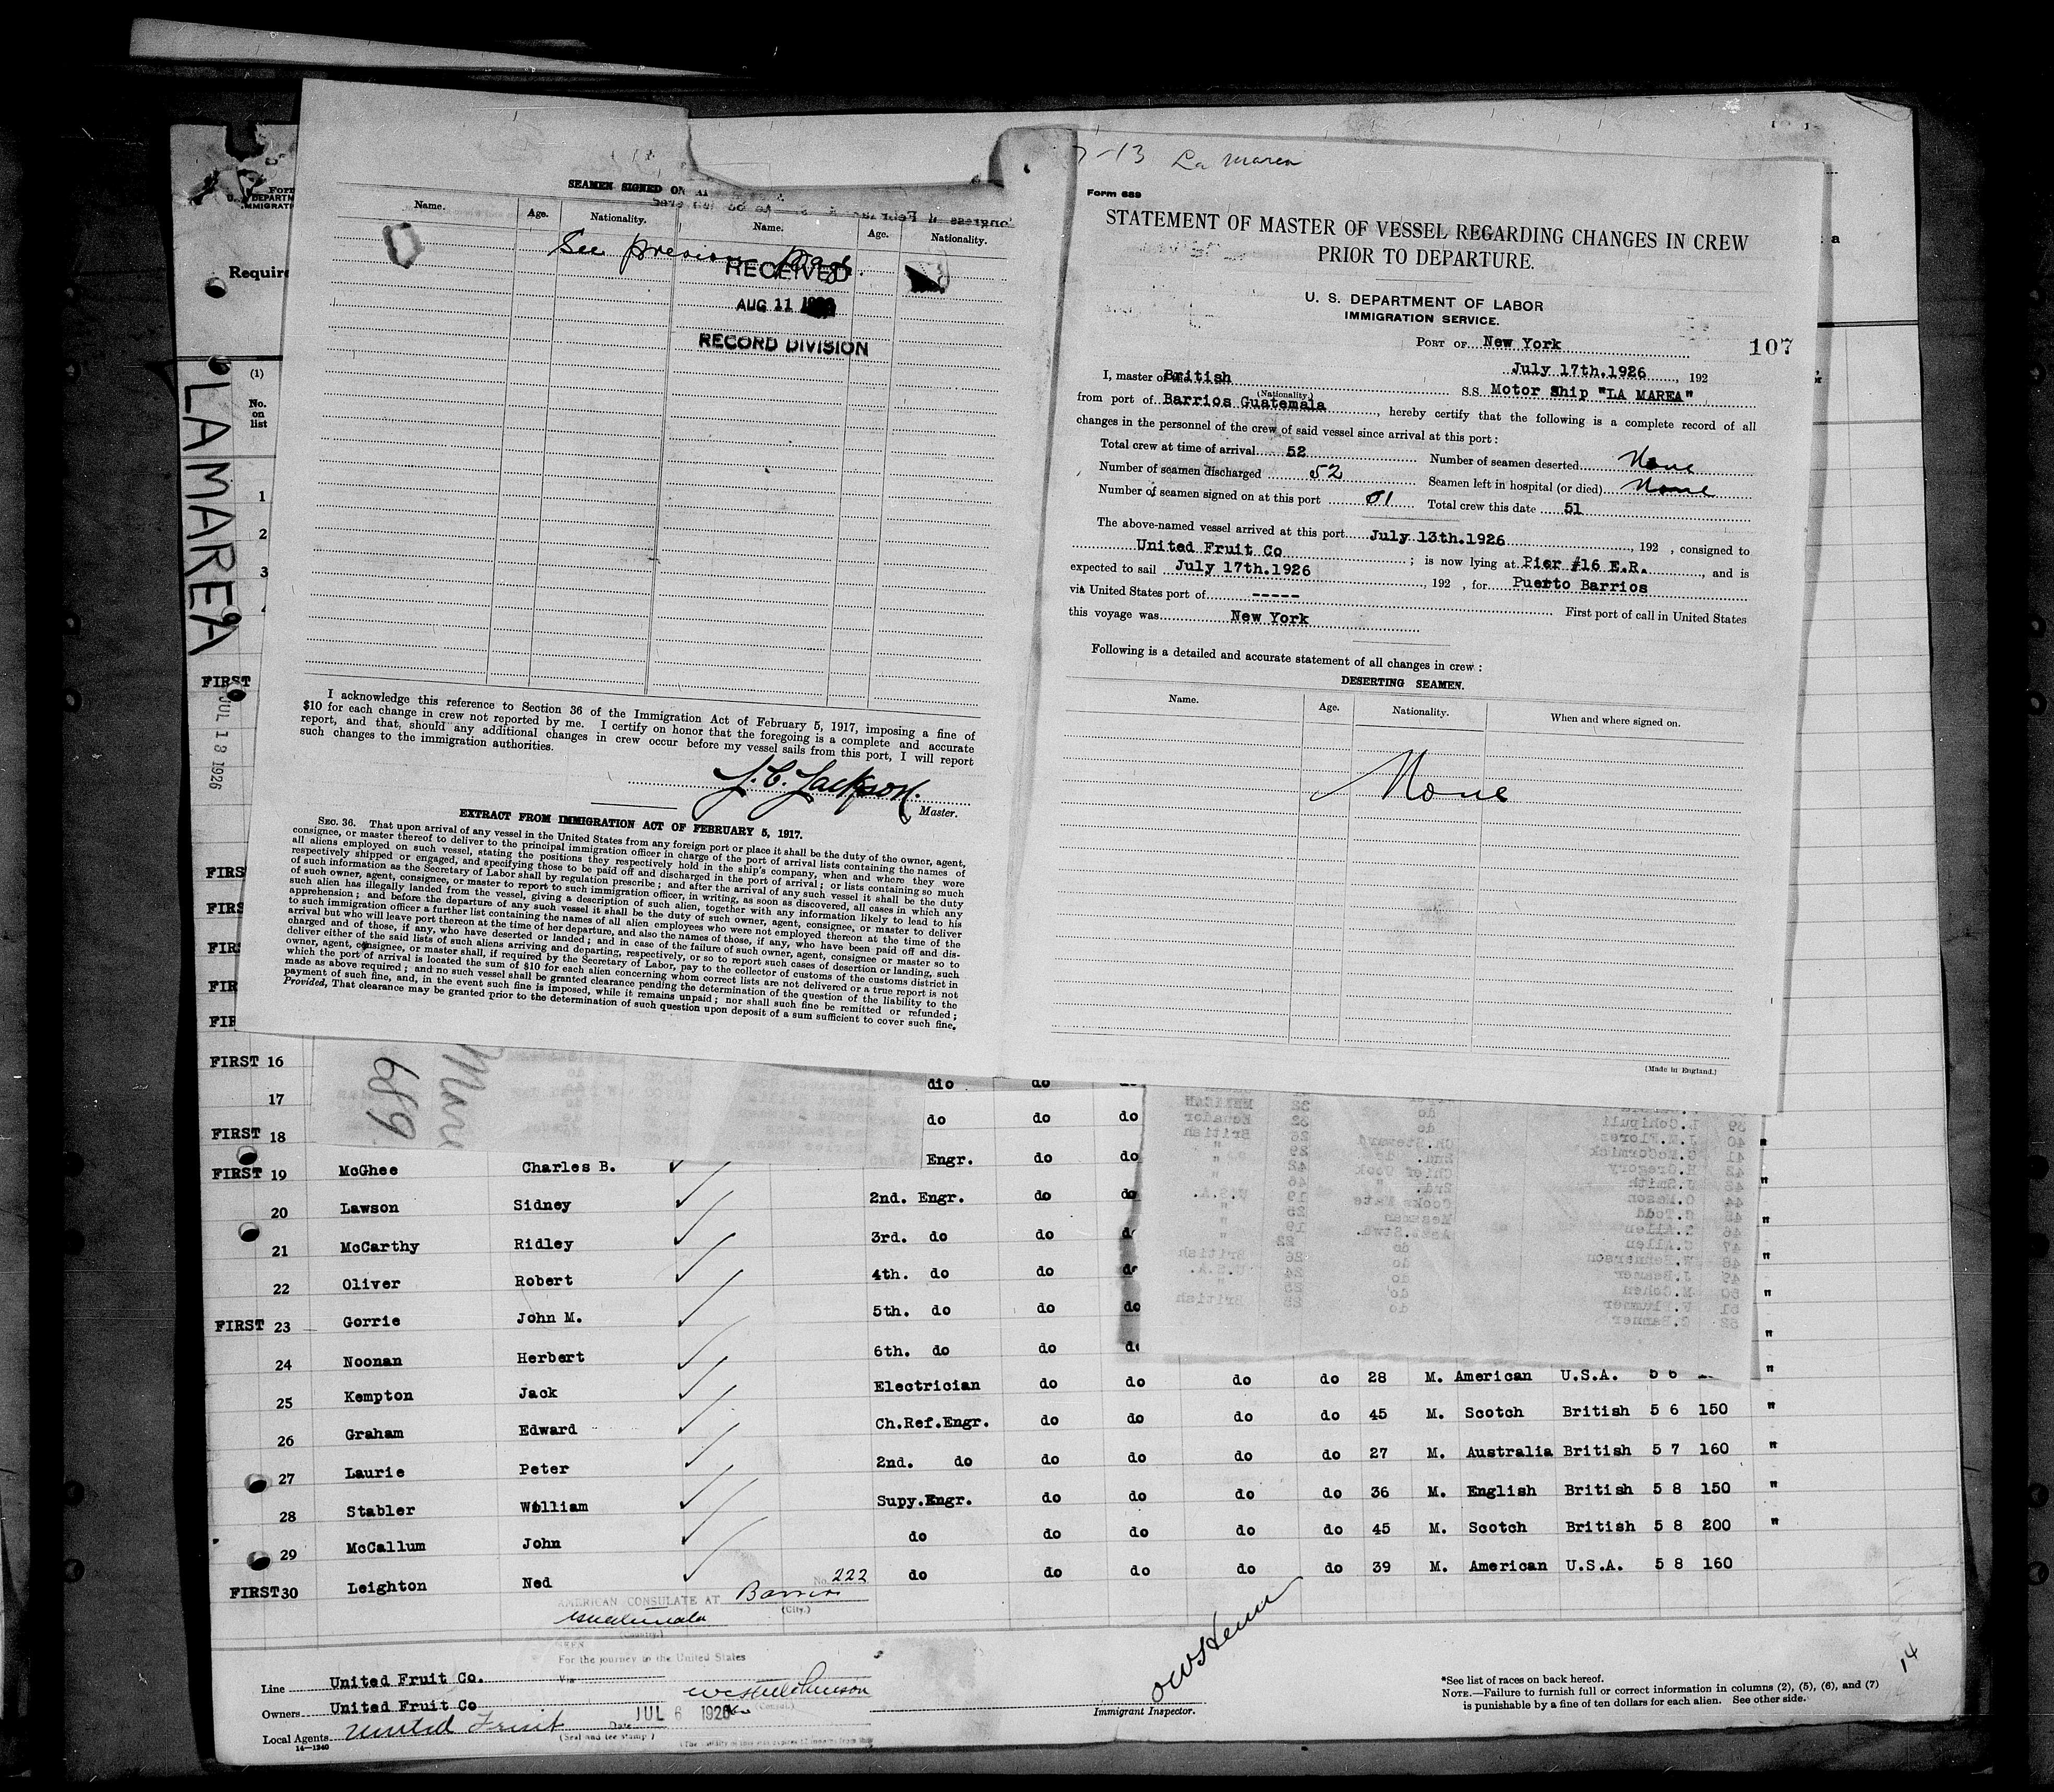 7-13 La Marea
Form 689
STATEMENT OF MASTER OF VESSEL REGARDING CHANGES IN CREW
PRIOR TO DEPARTURE.
U. S. DEPARTMENT OF LABOR
IMMIGRATION SERVICE.
PORT OF New York
107
July 17th.1926, 192
I, master of the British S.S. Motor Ship "LA MAREA"
(Nationality.)
from port of Barrios Guatemala, hereby certify that the following is a complete record of all
changes in the personnel of the crew of said vessel since arrival at this port:
Total crew at time of arrival 52 Number of seamen deserted None
Number of seamen discharged 52 Seamen left in hospital (or died) None
Number of seamen signed on at this port 51 Total crew this date 51
The above-named vessel arrived at this port July 13th.1926, 192 , consigned to
United Fruit Co ; is now lying at Pier #16 E.R., and is
expected to sail July 17th.1926, 192 , for Puerto Barrios
via United States port of ----- First port of call in United States
this voyage was New York
Following is a detailed and accurate statement of all changes in crew:
DESERTING SEAMEN.
Name. Age. Nationality. When and where signed on.
None
(Made in England.)
SEAMEN SIGNED ON
Name. Age. Nationality. Name. Age. Nationality.
See previous page.
RECEIVED
AUG 11
RECORD DIVISION
I acknowledge this reference to Section 36 of the Immigration Act of February 5, 1917, imposing a fine of
$10 for each change in crew not reported by me. I certify on honor that the foregoing is a complete and accurate
report, and that, should any additional changes in crew occur before my vessel sails from this port, I will report
such changes to the immigration authorities.
J. C. Jackson.
Master.
EXTRACT FROM IMMIGRATION ACT OF FEBRUARY 5, 1917.
SEC. 36. That upon arrival of any vessel in the United States from any foreign port or place it shall be the duty of the owner, agent,
consignee, or master thereof to deliver to the principal immigration officer in charge of the port of arrival lists containing the names of
all aliens employed on such vessel, stating the positions they respectively hold in the ship's company, when and where they were
respectively shipped or engaged, and specifying those to be paid off and discharged in the port of arrival; or lists containing so much
of such information as the Secretary of Labor shall by regulation prescribe; and after the arrival of any such vessel it shall be the duty
of such owner, agent, consignee, or master to report to such immigration officer, in writing, as soon as discovered, all cases in which any
such alien has illegally landed from the vessel, giving a description of such alien, together with any information likely to lead to his
apprehension; and before the departure of any such vessel it shall be the duty of such owner, agent, consignee, or master to deliver
to such immigration officer a further list containing the names of all alien employees who were not employed thereon at the time of the
arrival but who will leave port thereon at the time of her departure, and also the names of those, if any, who have been paid off and dis-
charged and of those, if any, who have deserted or landed; and in case of the failure of such owner, agent, consignee or master so to
deliver either of the said lists of such aliens arriving and departing, respectively, or so to report such cases of desertion or landing, such
owner, agent, consignee, or master shall, if required by the Secretary of Labor, pay to the collector of customs of the customs district in
which the port of arrival is located the sum of $10 for each alien concerning whom correct lists are not delivered or a true report is not
made as above required; and no such vessel shall be granted clearance pending the determination of the question of the liability to the
payment of such fine, and, in the event such fine is imposed, while it remains unpaid; nor shall such fine be remitted or refunded;
Provided, That clearance may be granted prior to the determination of such question upon deposit of a sum sufficient to cover such fine.
Form
U. S. DEPARTM
IMMIGRATI
Require
(1)
No.
on
list
LA MAREA
1
2
3
FIRST
JUL 13 1926
FIRS
FIRS
FIR
FIR
FIF
FIRST 16
689
dio do
17 do do do
FIRST 18 Engr. do do
FIRST 19 McGhee Charles B. 2nd. Engr. do do
20 Lawson Sidney 3rd. do do
21 McCarthy Ridley 4th. do do
22 Oliver Robert 5th. do do do
FIRST 23 Gorrie John M. 6th. do do
24 Noonan Herbert Electrician do do do do 28 M. American U.S.A. 5 6
25 Kempton Jack Ch.Ref.Engr. do do do do 45 M. Scotch British 5 6 150 "
26 Graham Edward 2nd. do do do do do 27 M. Australia British 5 7 160 "
27 Laurie Peter Supy.Engr. do do do do 36 M. English British 5 8 150 "
28 Stabler William do do do do do 45 M. Scotch British 5 8 200 "
29 McCallum John do do do do do 39 M. American U.S.A. 5 8 160
FIRST 30 Leighton Ned
No. 222
AMERICAN CONSULATE AT Barrios
(City.)
Guatemala
(Country.)
SEEN
For the journey to the United States
Via
JUL 6 1926
Date
(Seal and fee stamp)
Line United Fruit Co.
Owners United Fruit Co
Local Agents United Fruit
14—1240
Immigrant Inspector.
*See list of races on back hereof.
NOTE.—Failure to furnish full or correct information in columns (2), (5), (6), and (7)
is punishable by a fine of ten dollars for each alien. See other side.
14